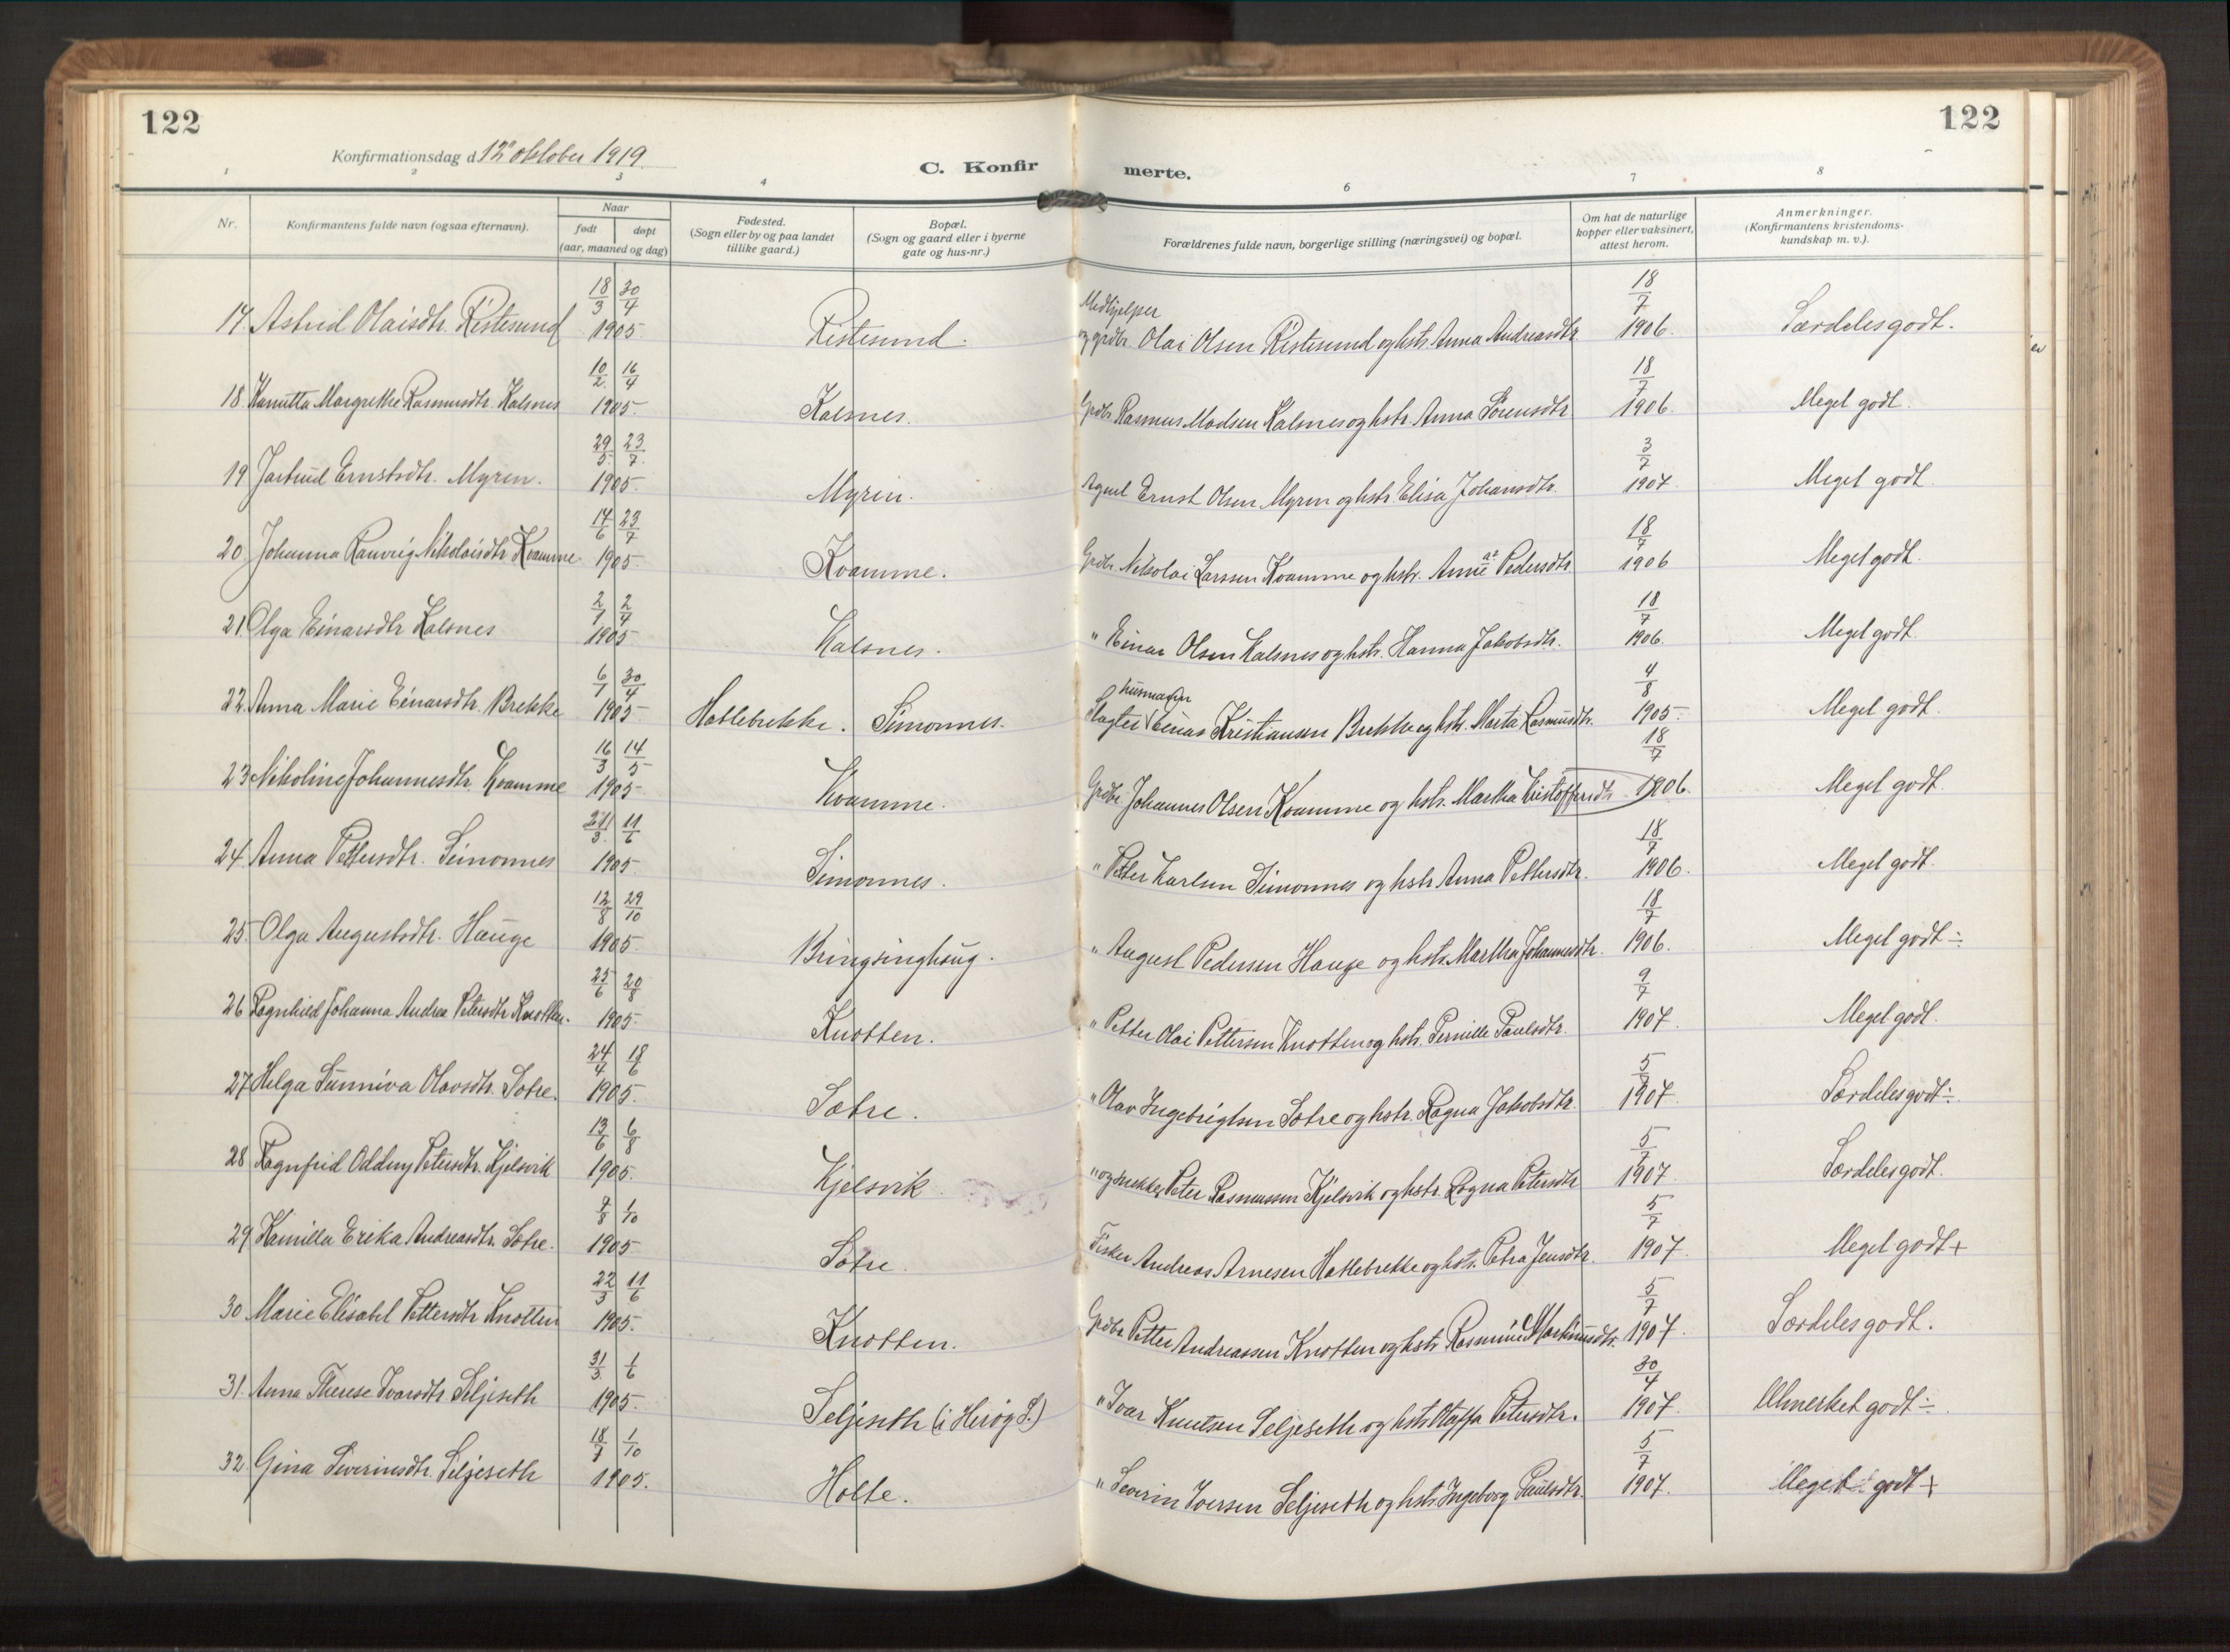 122
122
Konfirmationsdag d. 12' oktober 1919.
C. Konfir
merte.
1 2 3 4 6 7 8
Nr.
Konfirmantens fulde navn (ogsaa efternavn).
Naar
født døpt
(aar, maaned og dag)
Fødested.
(Sogn eller by og paa landet
tillike gaard.)
Bopæl.
(Sogn og gaard eller i byerne
gate og hus-nr.)
Forældrenes fulde navn, borgerlige stilling (næringsvei) og bopæl.
Om hat de naturlige
kopper eller vaksinert,
attest herom.
Anmerkninger.
(Konfirmantens kristendoms-
kundskap m. v.).
18/3 30/4 Medhjelper 18/7
17. Astrid Olaisdtr. Ristesund 1905. Ristesund. og grdbr. Olai Olsen Ristesund og hstr. Anna Andreasdtr. 1906. Særdeles godt.
10/2 16/4 18/7
18. Kanutta Margrethe Rasmusdtr. Kalsnes 1905. Kalsnes. Grdbr. Rasmus Madsen Kalsnes og hstr. Anna Sørensdtr. 1906. Meget godt.
29/5 23/7 3/7
19. Jartrud Ernstsdtr. Myren. 1905. Myren. Agent Ernst Olsen Myren og hstr. Elisa Johansdtr. 1907. Meget godt.
14/6 23/7 18/7
20. Johanna Ranveig Nikolaisdtr. Kvamme 1905. Kvamme. Grdbr. Nikolai Larssen Kvamme og hstr. Anne Pedersdtr. 1906 Meget godt.
2/1 2/4 18/7
21. Olga Einarsdtr. Kalsnes 1905. Kalsnes. " Einar Olsen Kalsnes og hstr. Hanna Jakobsdtr. 1906. Meget godt.
6/1 30/4 husmann 4/8
22. Anna Marie Einarsdtr. Brekke 1905 Hatlebrekke. Simonnes. Slagter Einar Kristiansen Brekke og hstr. Marta Rasmusdtr. 1905. Meget godt.
16/3 14/5 18/7
23. Nikoline Johannesdtr. Kvamme 1905 Kvamme. Grdbr. Johannes Olsen Kvamme og hstr. Martha Kristoffersdtr. 1906. Meget godt.
11/6 18/7
24. Anna Pettersdtr. Simonnes 1905. Simonnes. " Peter Karlsen Simonnes og hstr. Anna Pettersdtr. 1906. Meget godt.
12/8 29/10 18/7
25. Olga Augustsdtr. Hauge 1905. Bringsinghaug. " August Pedersen Hauge og hstr. Martha Johannesdtr. 1906. Meget godt ÷
25/6 20/8 9/7
26 Ragnhild Johanna Andrea Petersdtr. Knotten. 1905. Knotten. " Petter Olai Pettersen Knotten og hstr. Pernille Paulsdtr. 1907. Meget godt.
24/4 18/6 5/7
27. Helga Sunniva Olavsdtr. Sætre. 1905. Sætre. " Olav Ingebrigtsen Sætre og hstr. Ragna Jakobsdtr. 1907. Særdeles godt ÷
13/6 6/8 5/7
28 Ragnfrid Oddny Petersdtr. Kjelsvik 1905. Kjelsvik. " og snekker Peter Rasmussen Kjelsvik og hstr. Ragna Petersdtr. 1907. Særdeles godt.
1/10 5/7
29. Kamilla Erika Andreasdtr. Sætre. 1905 Sætre. Fisker Andreas Arnesen Hatlebrekke og hstr. Petra Jensdtr. 1907. Meget godt +
22/3 11/6 5/7
30. Marie Elisabet Pettersdtr. Knotten 1905. Knotten. Grdbr. Petter Andreassen Knotten og hstr. Rasmine Markusdtr. 1907. Særdeles godt.
31/3 1/6 30/4
31. Anna Therese Ivarsdtr. Seljeseth 1905. Seljeseth (i Herøy S.) " Ivar Knutsen Seljeseth og hstr. Oluffa Petersdtr. 1907. Utmerket godt ÷.
18/7 1/10 5/7
32. Gina Severinsdtr. Seljeseth 1905. Holte. " Severin Iversen Seljeseth og hstr. Ingeborg Paulsdtr. 1907. Meget godt +